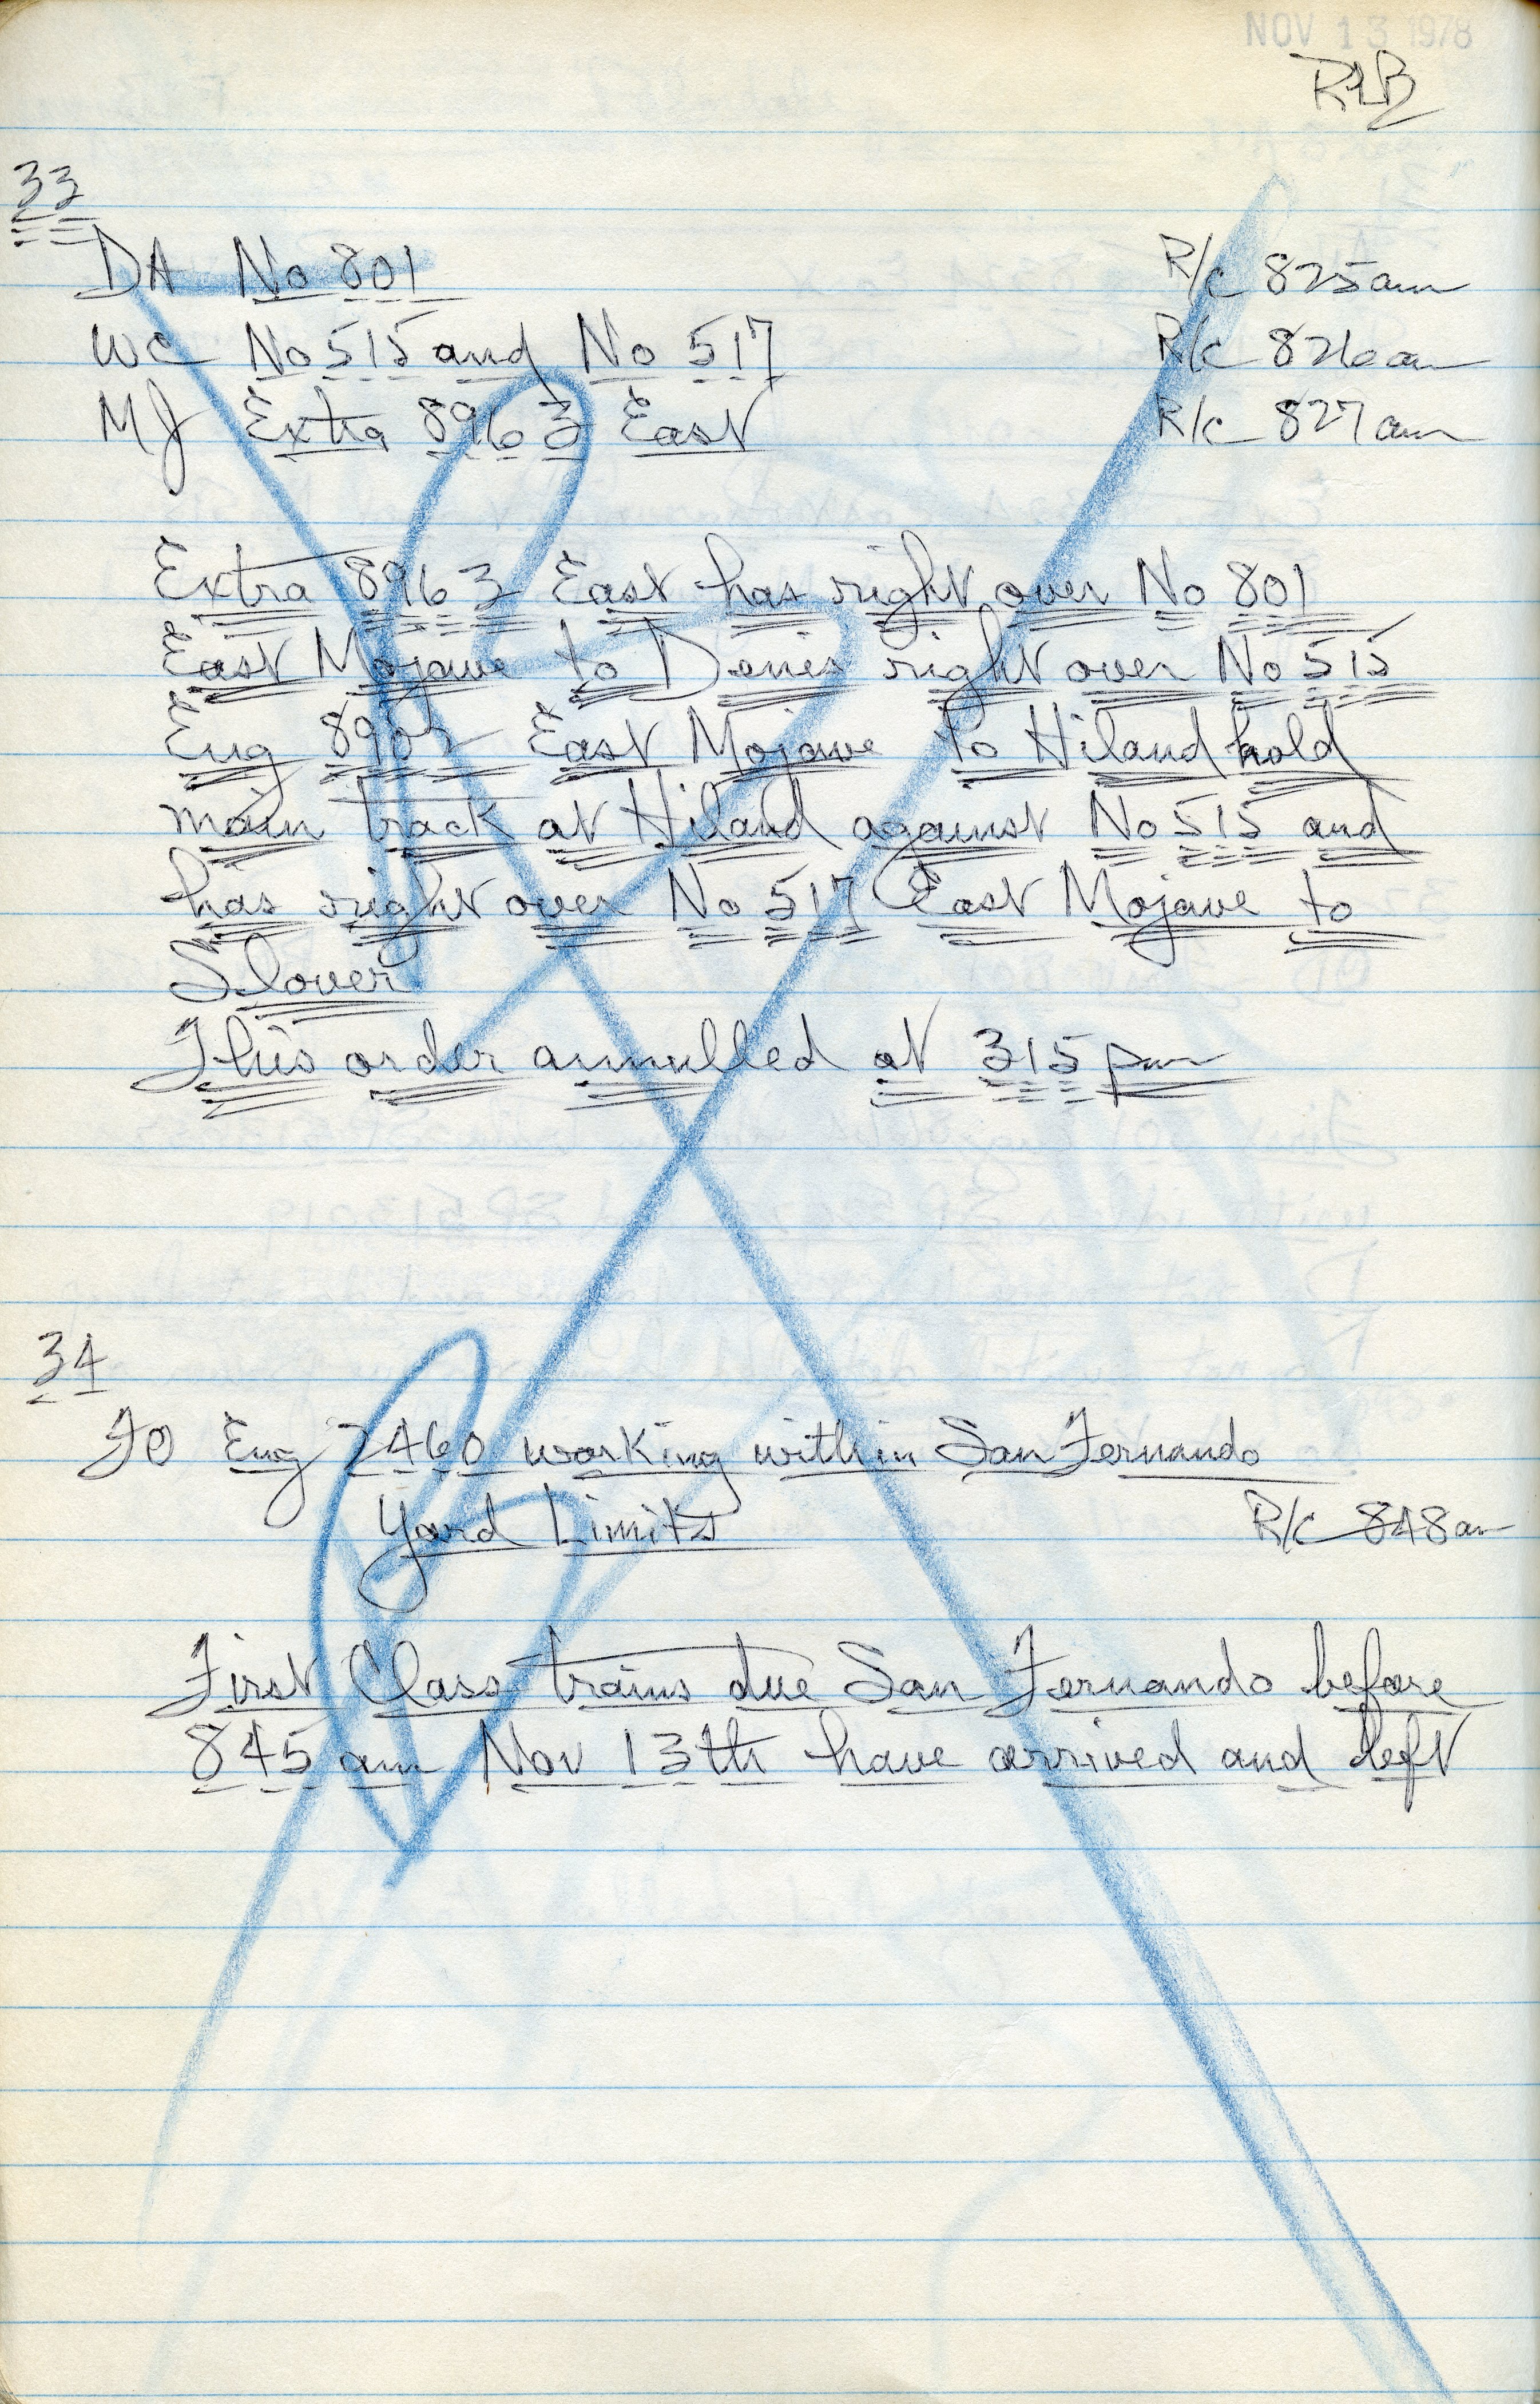 NOV 13 1978
RLB
33
DA No 801 R/c 825am
WC No 515 and No 517 R/c 826am
MJ Extra 8963 East R/c 827am
Extra 8963 East has right over No 801
East Mojave to Denis right over No 515
Eng 8902 East Mojave to Hiland hold
main track at Hiland against No 515 and
has right over No 517 East Mojave to
Slover
This order annulled at 315 pm
34
FO Eng 2460 working within San Fernando
Yard Limits R/c 848am
First Class trains due San Fernando before
845 am Nov 13th have arrived and left